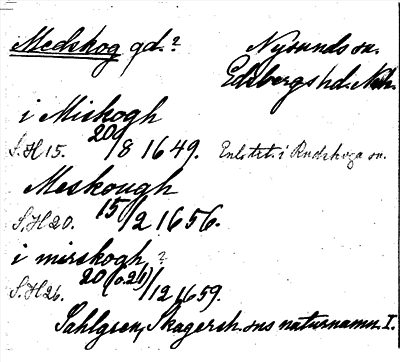 Medskog gd.? Nysunds sn.
Edsbergs hd. Närk.
i Miskogh
S.H 15. 20/8 1649. Enl. st. i Rudskoga sn.
Meskough
S.H 20. 15/2 1656.
i mirskogh ?
S.H 26. 20 (o. 21)/12 1659.
Sahlgren, Skagersh. sns naturnamn I.